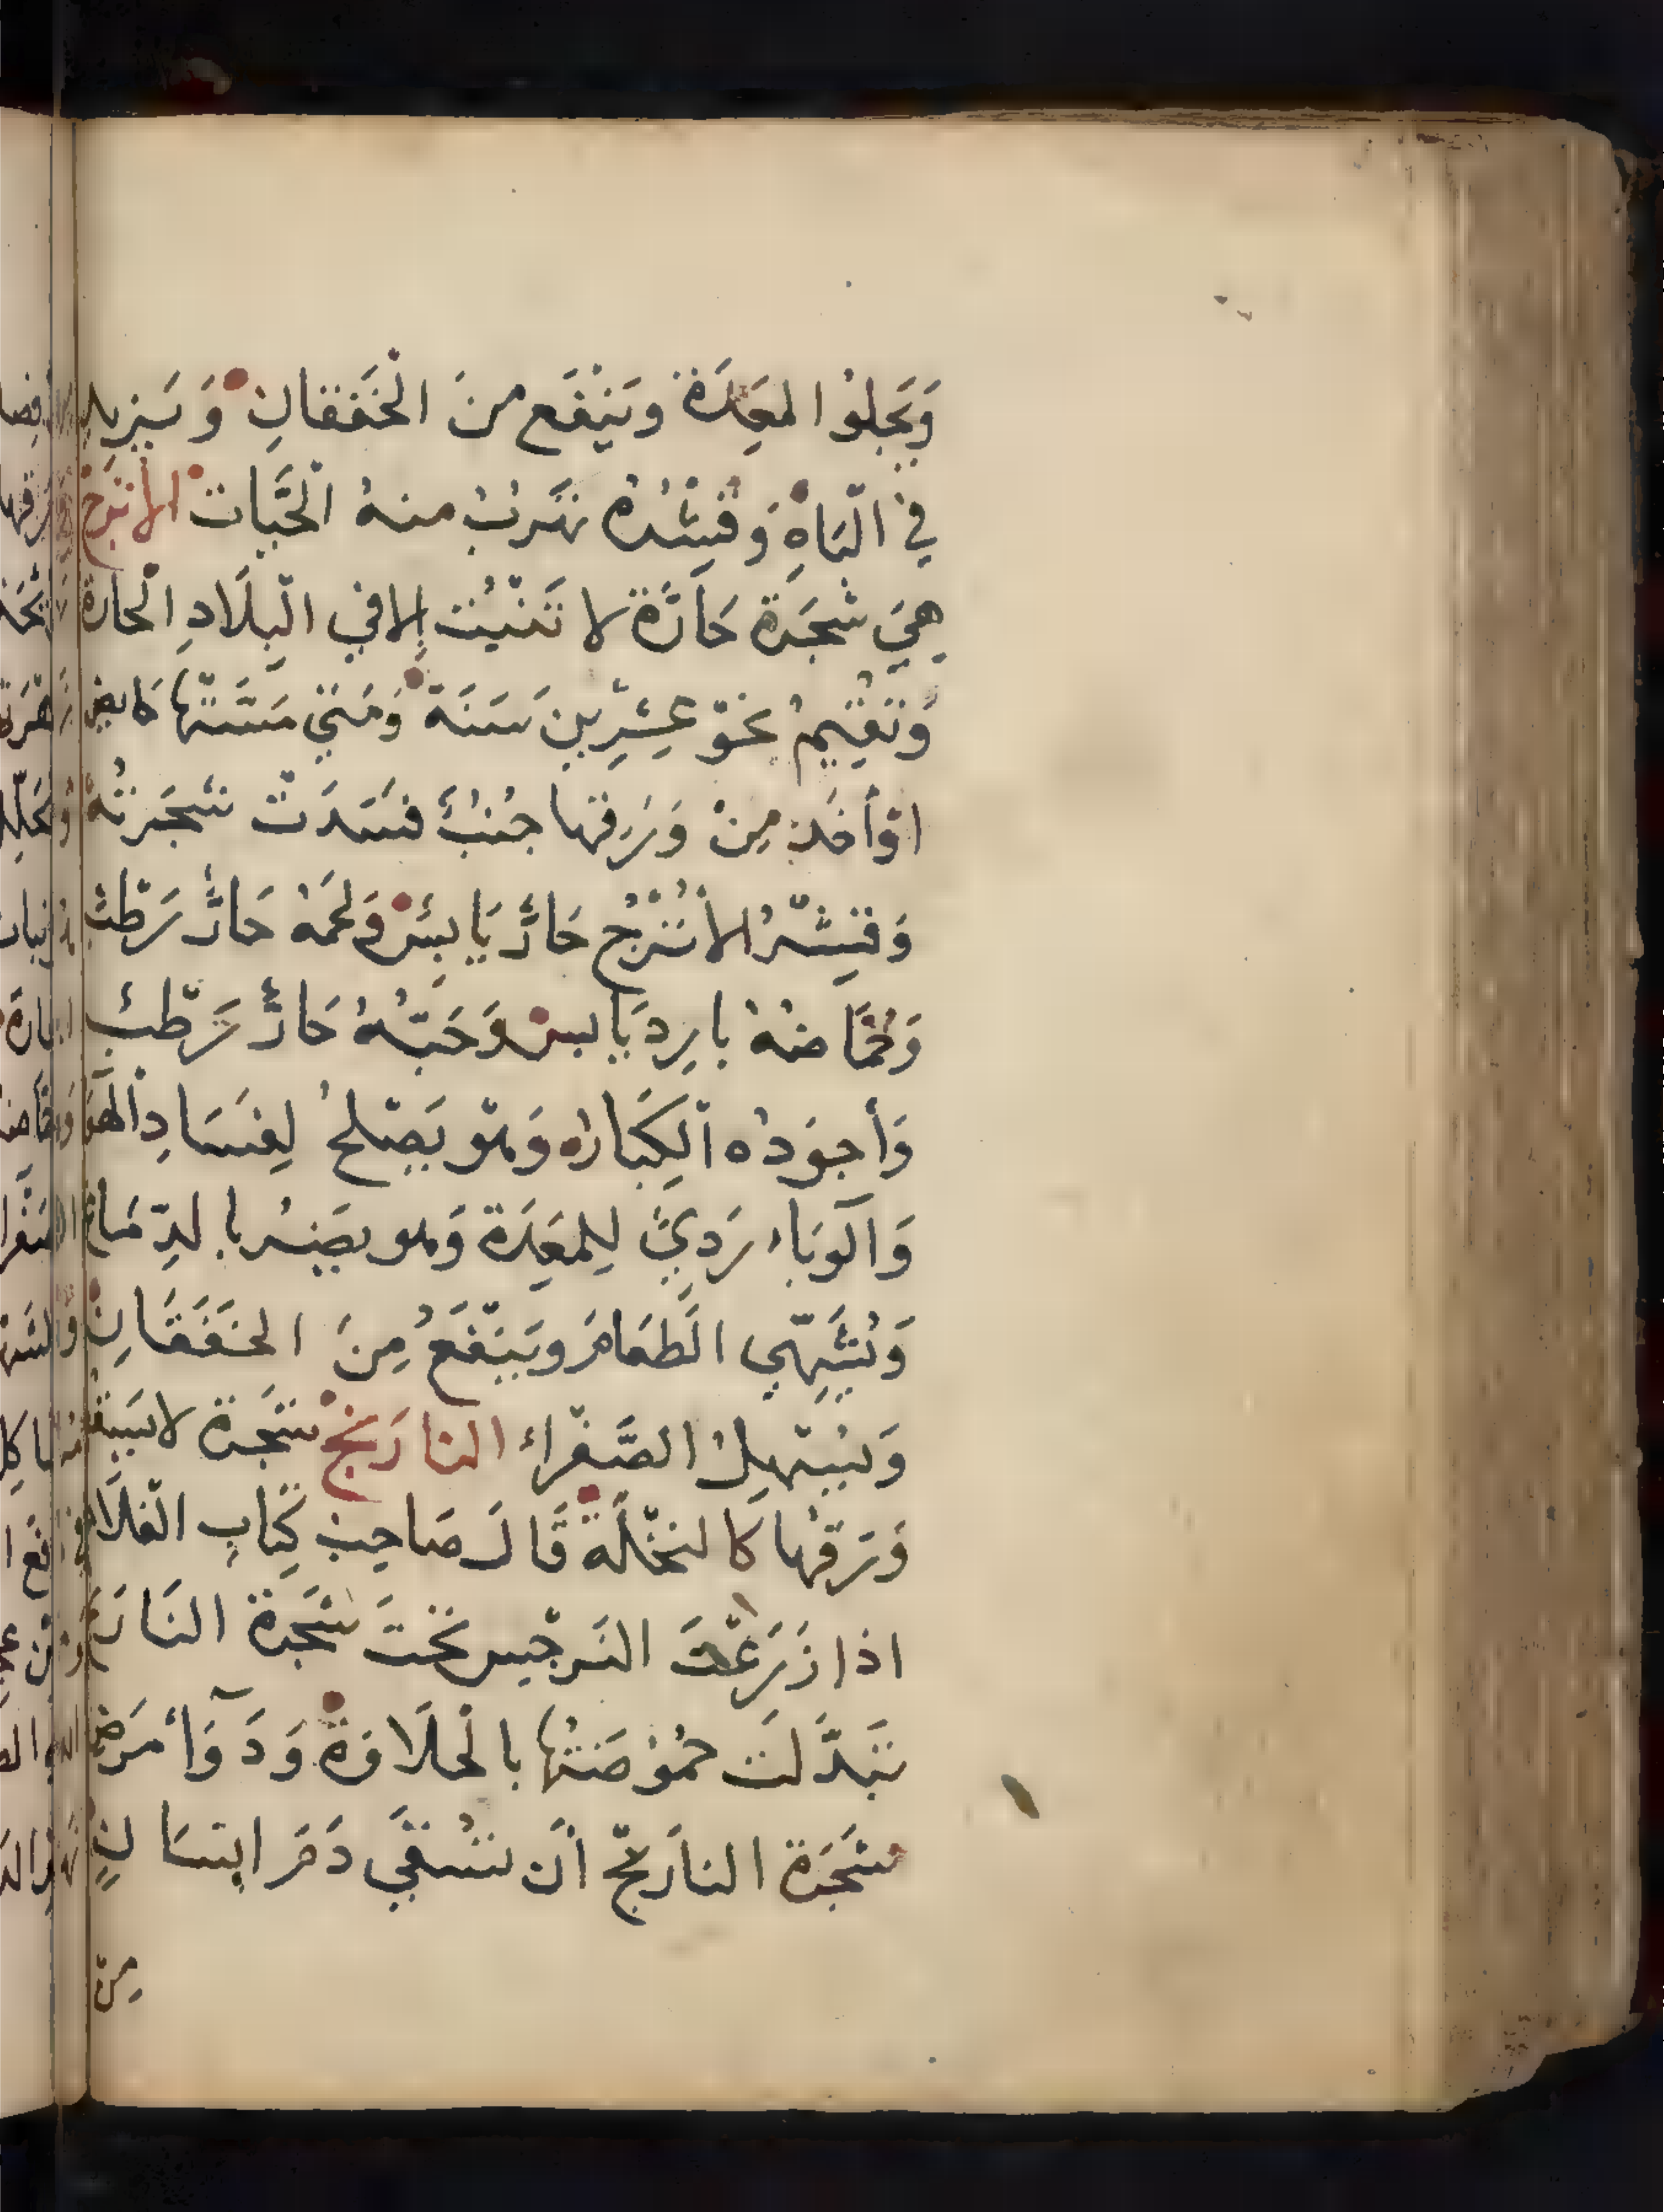 وَيَجلُوا المعِدَة وَيَنْفَع منَ الْخَفَقانِ وَ يَزيد
فِي الْبَاهِ وَ قُشُرُهُ تَهَربُ منهُ الْحَيَّات الأُترَج
هِيَ شْجَرَة حَارَّة لا تَنْبُت إِلا فِي الْبِلَادِ الْحارة
وَتقِيمُ نحْوَ عِشرِين سَنَة وَمَتي مَسَّتْها حَايض
اوْ أخَذ مِنْ وَرَقها جُنُبٌ فسَدَتْ شجَرتُهُ
وَقِشْرُ الأُتْرُجِ حَارٌ يَابِسْ وَلحمَهُ حَارٌ رَطْب
وَحُمَّاضهُ بارِد يَابس وَحَبّهُ حَارٌّ رَطْب
وَأجوَدُه الْكِبَارُه وَهْو يَصْلحُ لِفسَادِ الْهَوَا
وَالوَبَاء رَدِيّ لِلمعِدَة وَهو يضِرُ بالدِّمَاغ
وَيُشَهّي الطَعَامَ وَيَنْفَعُ مِنَ الخفَقَانِ
وَيُسْهِلُ الصَّفْراء النارَنج شَجَرة لا يَسقُ
وَرَقُها كَالنخْلَة قَالَ صَاحِبْ كِتابِ الْفلَا
اذا زَرَعْتَ النَرجِس تحْتَ شجَرة النَارَ
تبَدَّلَت حُمُوضَتُها بالْحلَاوَة وَدَوَآ أمَرَضِ
شَجَرَة النارَنجْ أنْ تُسْقَي دَمَ انسَانٍ
مِنْ